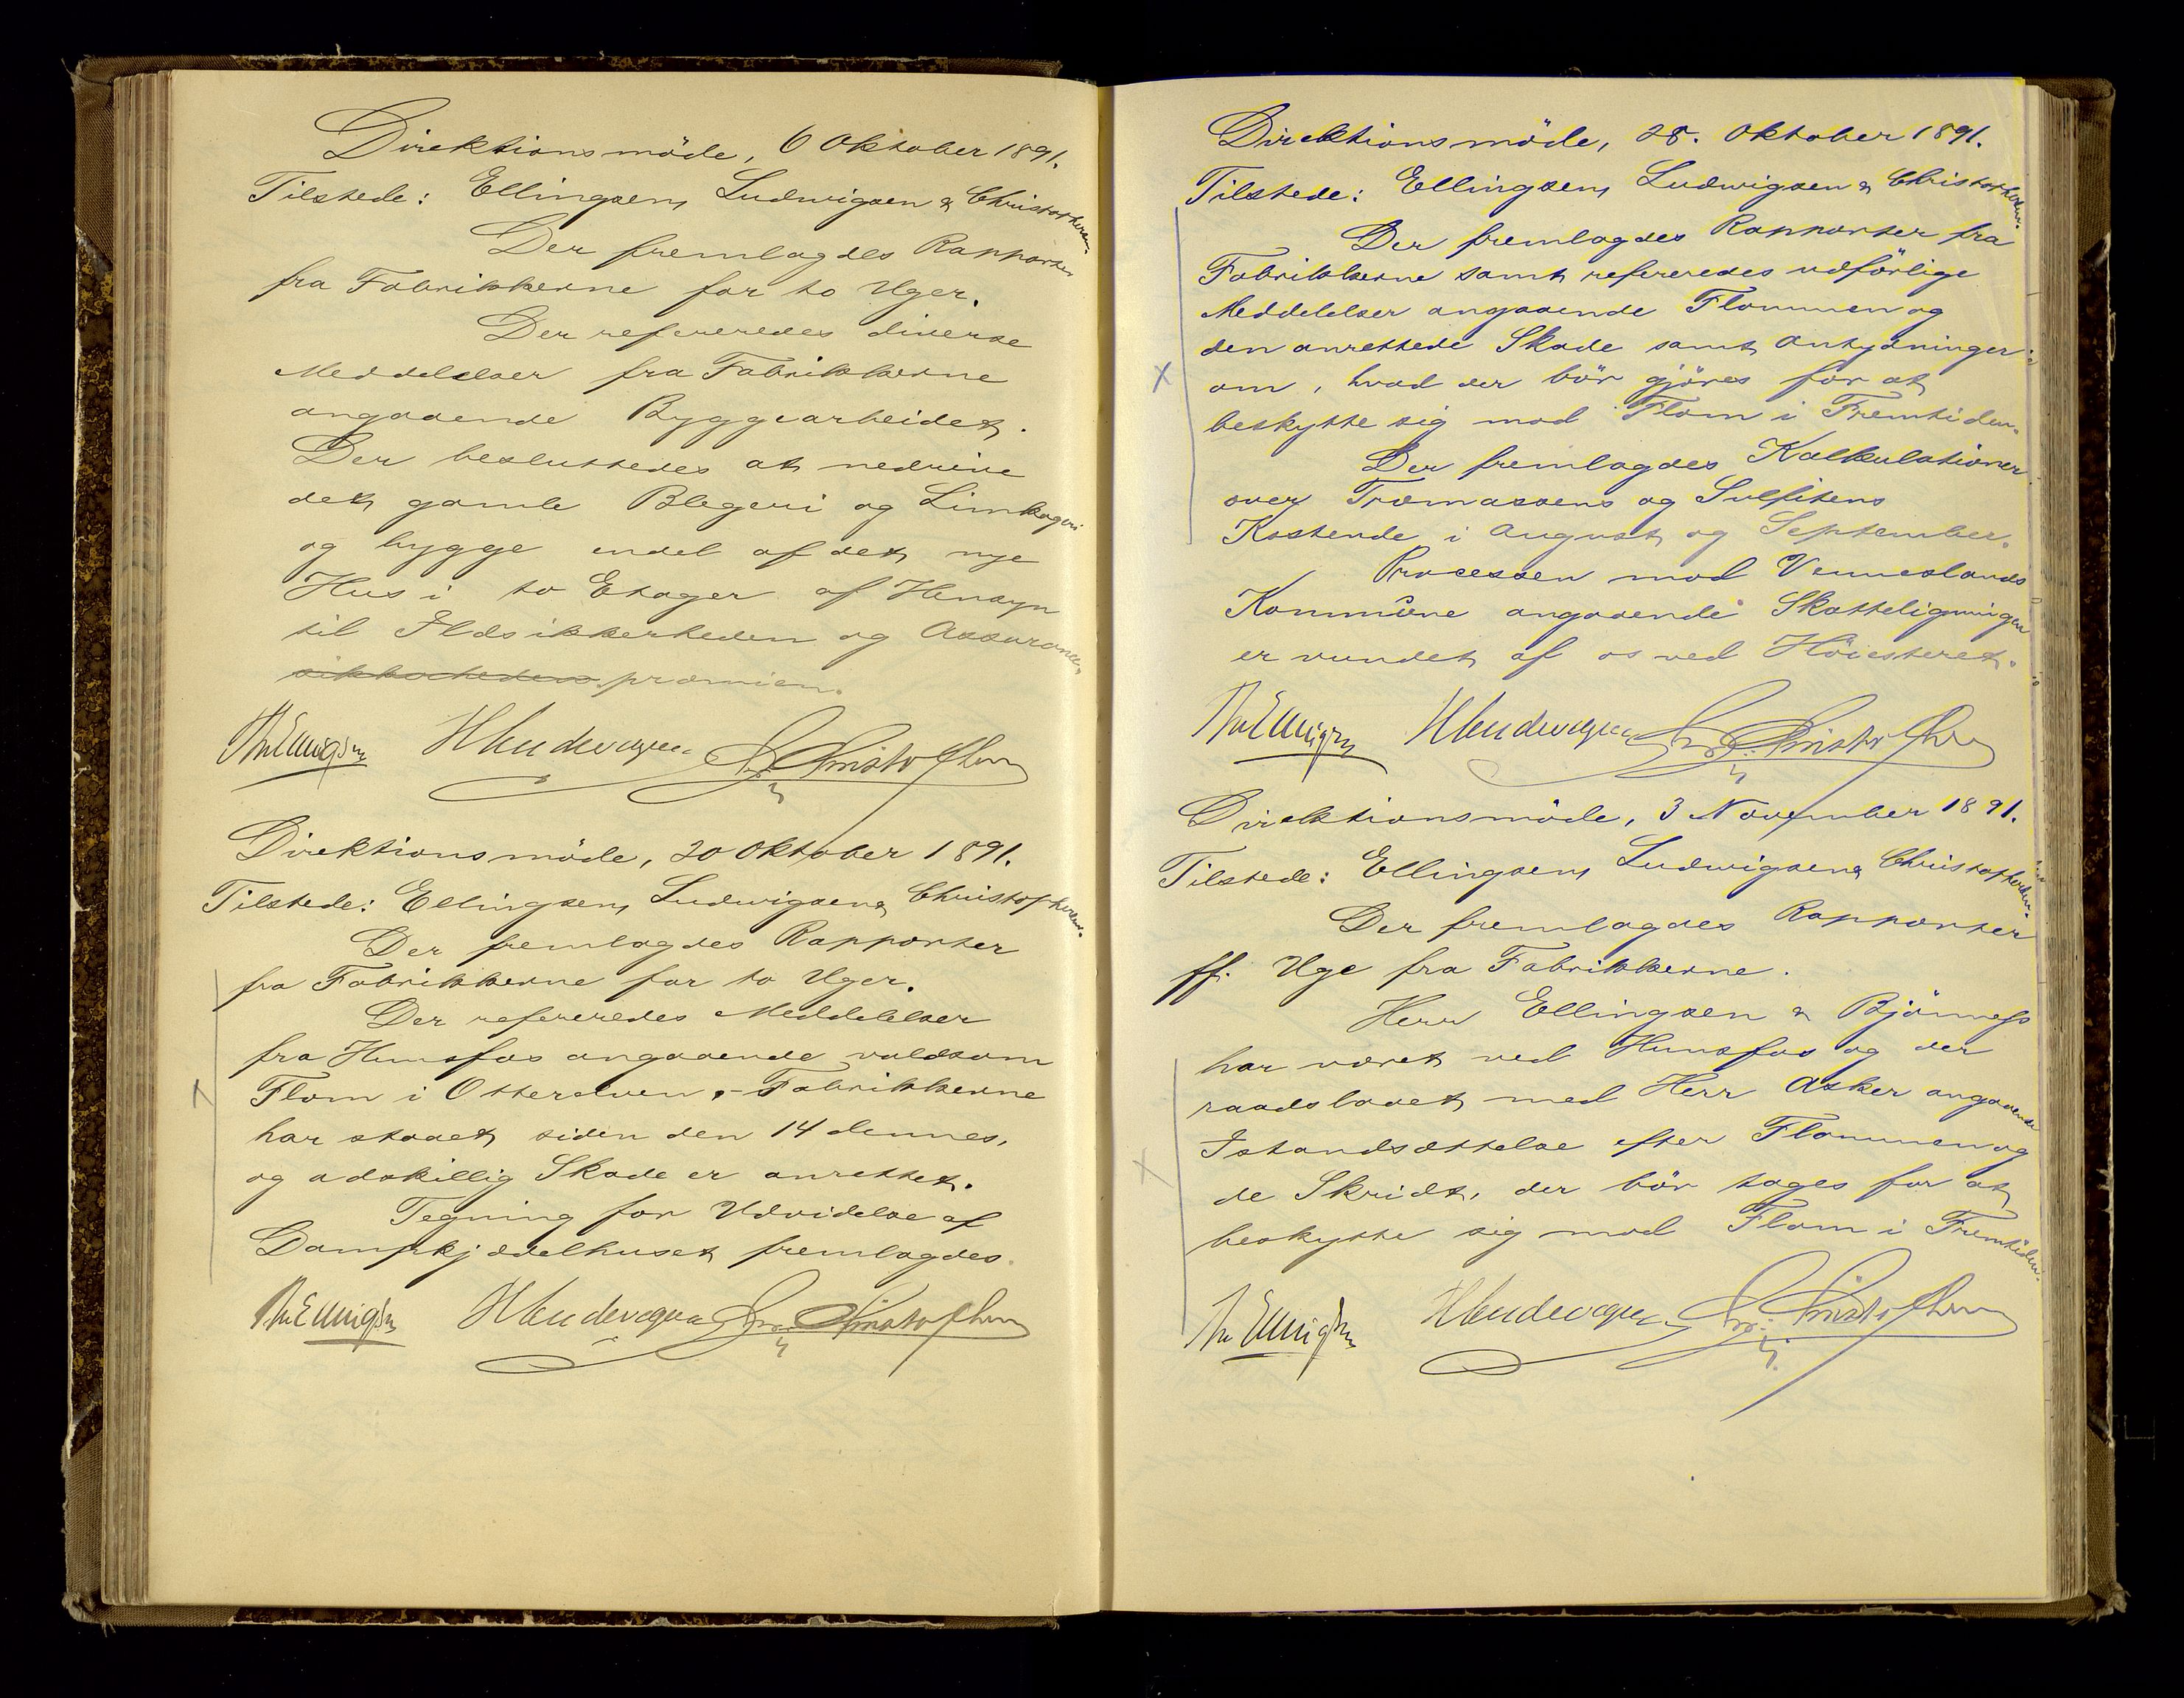 Direktionsmöde, 6 Oktober 1891.
Tilstede: Ellingsen, Ludwigsen & Christophersen.
Der fremlagdes Rapporter
fra Fabrikkerne for to Uger.
Der refereredes diverse
Meddelelser fra Fabrikkerne
angaaende Byggearbeidet.
Der besluttedes at nedrive
det gamle Blegeri og Limkogeri
og bygge endel af det nye
Hus i to Etager af Hensyn
til Ildsikkerheden og Assurance-
sikkerheden præmien.
Direktionsmöde, 20 Oktober 1891.
Tilstede: Ellingsen, Ludwigsen & Christophersen.
Der fremlagdes Rapporter
fra Fabrikkerne for to Uger.
Der refereredes Meddelelser
fra Hunsfos angaaende voldsom
Flom i Otterelven, - Fabrikkerne
har staaet siden den 14 dennes,
og adskillig Skade er anrettet.
Tegning for Udvidelse af
Dampkjædelhuset fremlagdes.
Direktionsmöde, 28. Oktober 1891.
Tilstede: Ellingsen, Ludwigsen & Christophersen.
Der fremlagdes Rapporter fra
Fabrikkerne samt refereredes udförlige
Meddelelser angaaende Flommen og
den anrettede Skade samt Antydninger
om, hvad der bör gjöres for at
beskytte sig mod Flom i Fremtiden.
Der fremlagdes Kalkulationer
over Træmassens og Sulfitens
Kostende i August og September.
Processen mod Venneslands
Kommune angaaende Skatteligningen
er vundet af os ved Höiesteret.
Direktionsmöde, 3 November 1891.
Tilstede: Ellingsen, Ludwigsen & Christophersen.
Der fremlagdes Rapporter
ff. Uge fra Fabrikkerne.
Herr Ellingsen &
har været ved Hunsfos og der
raadslaaet med Herr Asker angaaende
Istandsættelse efter Flommen og
de Skridt, der bör tages for at
beskytte sig mod Flom i Fremtiden.